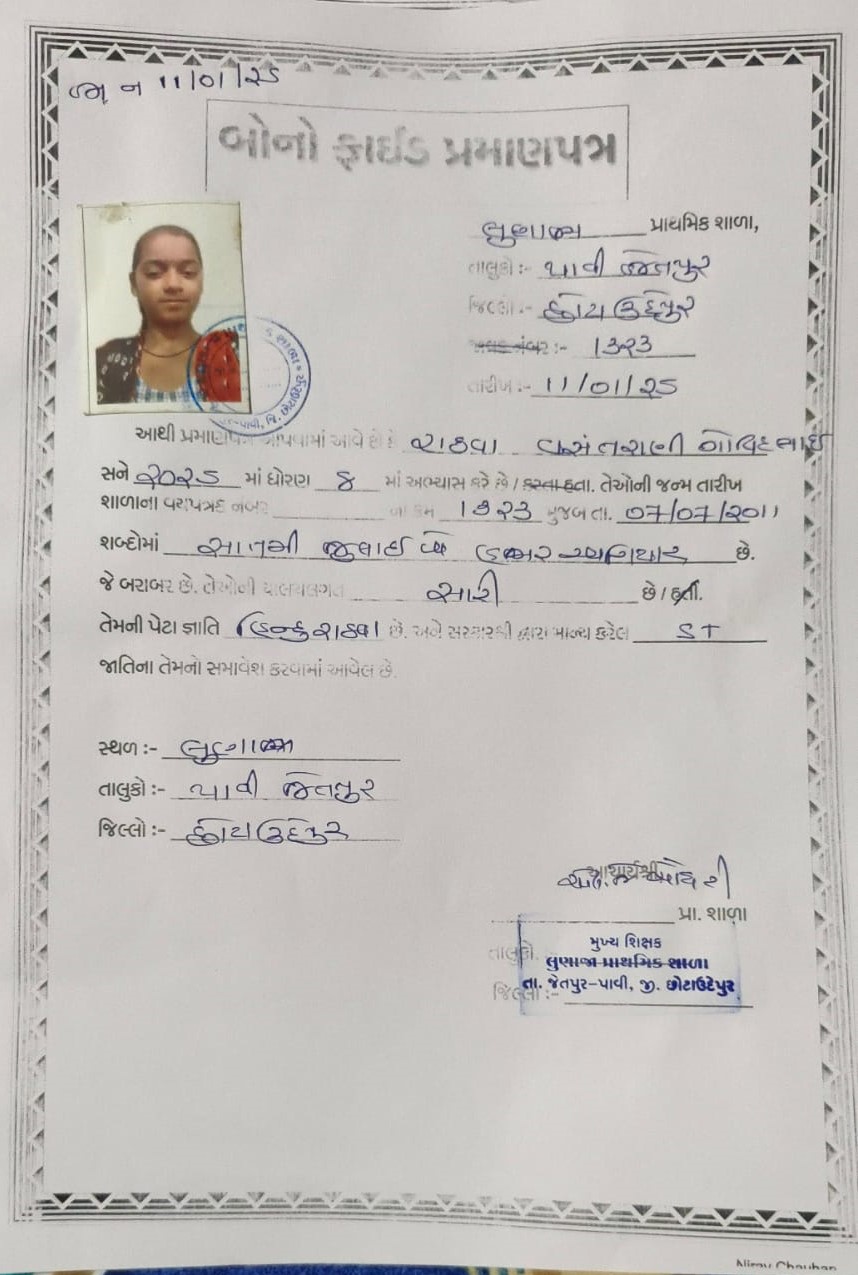 જા ન ૧૧/૦૧/૨૫
બોનો ફાઈડ પ્રમાણપત્ર
લુણાજા પ્રાથમિક શાળા,
તાલુકો :- પાવી જેતપુર
જિલ્લો :- છોટાઉદેપુર
નંબર :- ૧૩૨૩
તારીખ :- ૧૧/૦૧/૨૫
આથી પ્રમાણપત્ર આપવામાં આવે છે કે રાઠવા ગોવિંદભાઈ
સને ૨૦૨૫ માં ધોરણ ૪ માં અભ્યાસ કરે છે / કરતા હતા. તેઓની જન્મ તારીખ
શાળાના વયપત્રક નંબર ૧૩૨૩ મુજબ તા. ૦૭/૦૭/૨૦૧૧
શબ્દોમાં સાતમી જુલાઈ બે હજાર અગિયાર છે.
જે બરાબર છે. તેઓની ચાલચલગત સારી છે / હતી.
તેમની પેટા જ્ઞાતિ હિન્દુ રાઠવા છે. અને સરકારશ્રી દ્વારા માન્ય કરેલ ST
જાતિના તેમનો સમાવેશ કરવામાં આવેલ છે.
સ્થળ :- લુણાજા
તાલુકો :- પાવી જેતપુર
જિલ્લો :- છોટાઉદેપુર
આચાર્યશ્રી
પ્રા. શાળા
મુખ્ય શિક્ષક
તાલુકો.
લુણાજા પ્રાથમિક શાળા
તા. જેતપુર-પાવી, જી. છોટાઉદેપુર
જિલ્લો :-
Nirav Chauhan